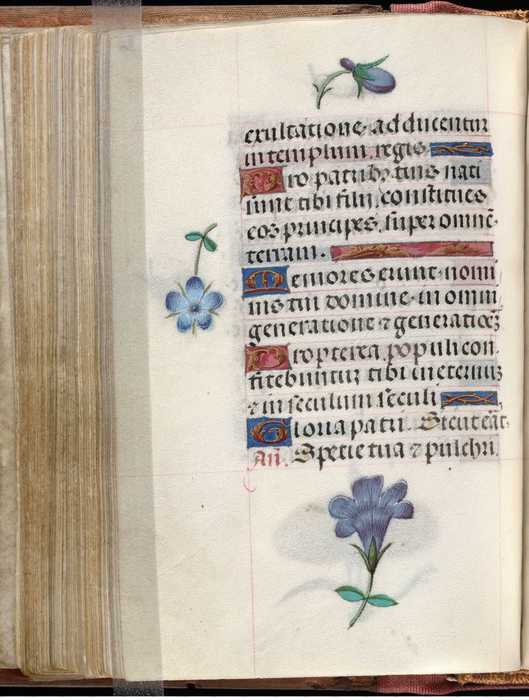 exultatione, adducentur
in templum regis.
Pro patribꝫ tuis nati
sunt tibi filii, constitues
eos principes, super omnē
terram.
Memores erunt nomi
nis tui domine, in omni
generatione ⁊ generatiōeꝫ
Propterea populi con
fitebuntur tibi in eternuꝫ
⁊ in seculum seculi
Gloria patri. Sicut erat.
Añ. Specie tua ⁊ pulchri